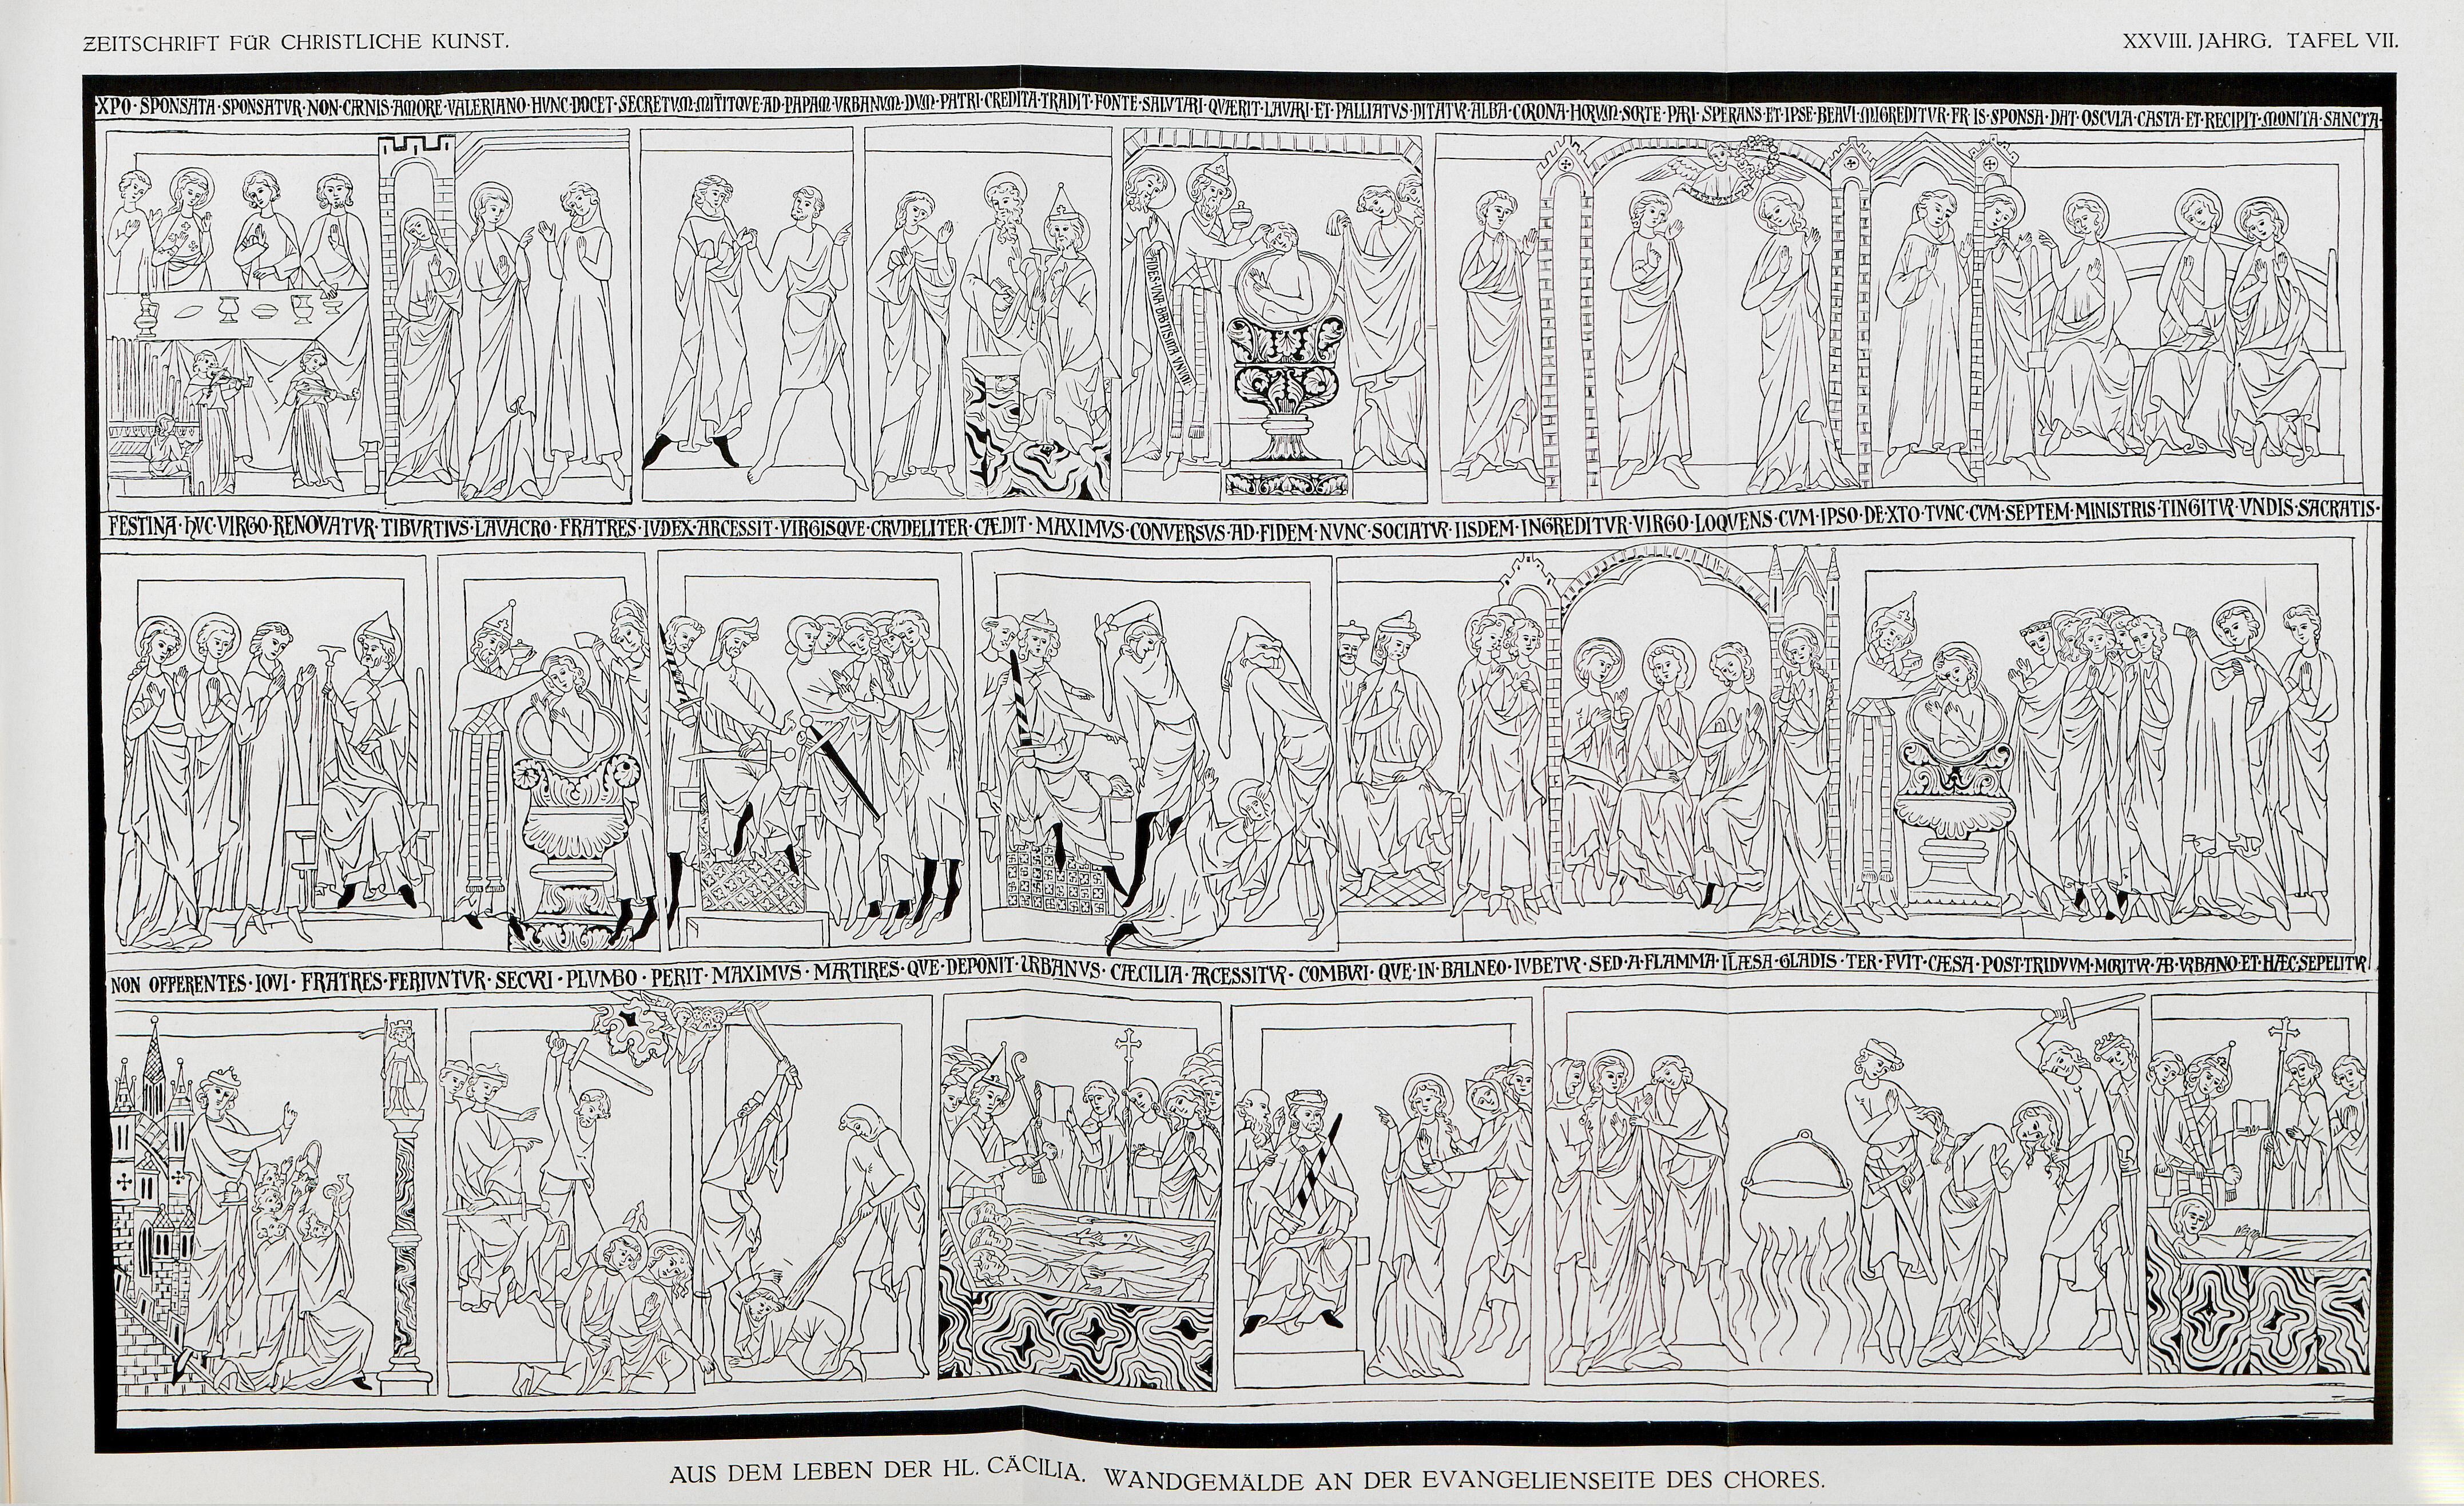 ZEITSCHRIFT FÜR CHRISTLICHE KUNST.
XXVIII. JAHRG. TAFEL VII.
XPO·SPONSATA·SPONSATVR·NON·CARNIS·AMORE·VALERIANO·HVNC·DOCET·SECRETVM·MITITQVE·AD·PAPAM·VRBANVM·DVM·PATRI·CREDITA·TRADIT·FONTE·SALVTARI·QVÆRIT·LAVARI·ET·PALLIATVS·DITATVR·ALBA·CORONA·HORVM·SORTE·PARI·SPERANS·ET·IPSE·BEAVI·INGREDITVR·FR IS·SPONSA·DAT·OSCVLA·CASTA·ET·RECIPIT·MONITA·SANCTA·
FIDES·VNA·BABTISMA·VNVM·
FESTINA·HVC·VIRGO·RENOVATVR·TIBVRTIVS·LAVACRO·FRATRES·IVDEX·ARCESSIT·VIRGISQVE·CRVDELITER·CÆDIT·MAXIMVS·CONVERSVS·AD·FIDEM·NVNC·SOCIATVR·IISDEM·INGREDITVR·VIRGO·LOQVENS·CVM·IPSO·DE·XTO·TVNC·CVM·SEPTEM·MINISTRIS·TINGITVR·VNDIS·SACRATIS·
NON OFFERENTES·IOVI·FRATRES·FERIVNTVR·SECVRI·PLVMBO·PERIT·MAXIMVS·MARTIRES·QVE·DEPONIT·URBANVS·CÆCILIA·ARCESSITVR·COMBVRI·QVE·IN·BALNEO·IVBETVR·SED·A·FLAMMA·ILÆSA·GLADIS·TER·FVIT·CÆSA·POST·TRIDVVM·MORITVR·AB·VRBANO·ET·HÆC·SEPELITVR
AUS DEM LEBEN DER HL. CÄCILIA. WANDGEMÄLDE AN DER EVANGELIENSEITE DES CHORES.